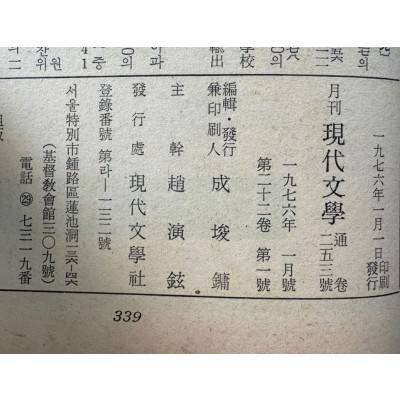 一九七六年一月一日 印刷 發行
月刊 現代文學 通卷 二五三號
一九七六年 一月號
第二十二卷 第一號
編輯·發行 兼印刷人 成埈鏞
主幹 趙演鉉
發行處 現代文學社
登錄番號 第라—一三二號
서울特別市鍾路區蓮池洞一三六—四六
(基督敎會館三〇九號)
電話 ㉙ 七三一九番
339